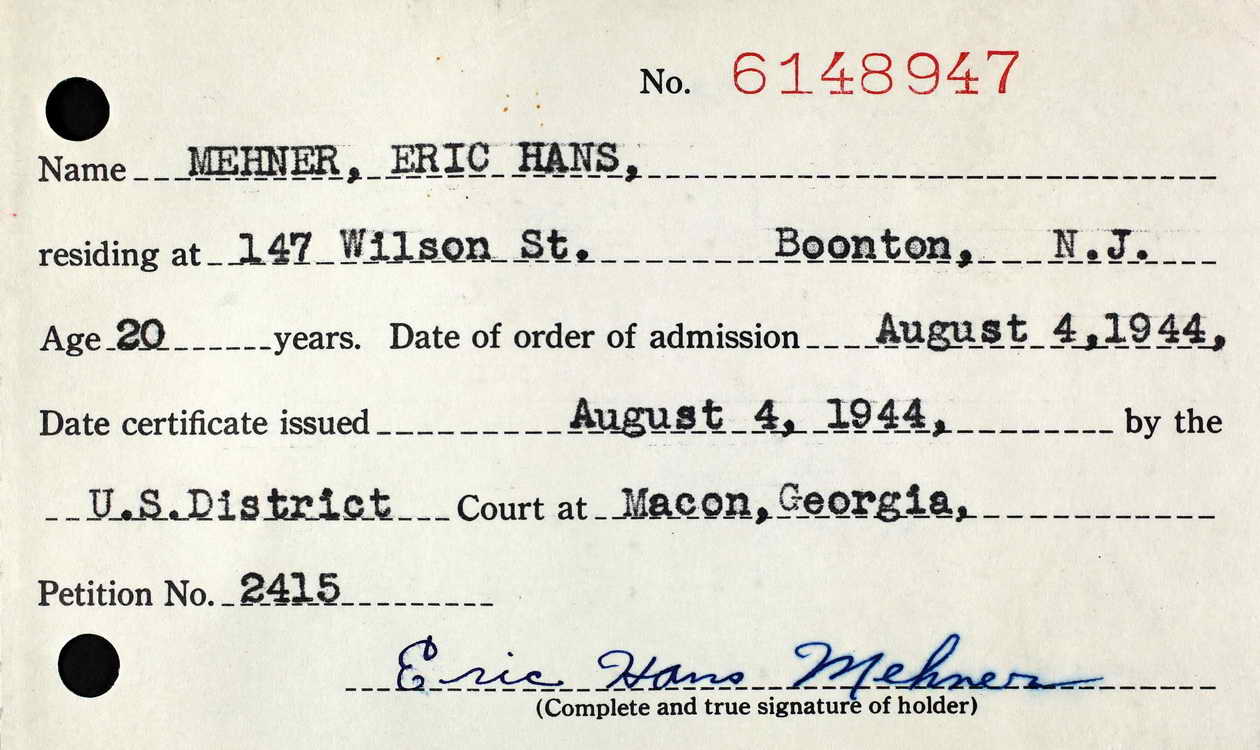 No. 6148947
Name MEHNER, ERIC HANS,
residing at 147 Wilson St. Boonton, N.J.
Age 20 years. Date of order of admission August 4,1944,
Date certificate issued August 4, 1944, by the
U.S.District Court at Macon,Georgia,
Petition No. 2415
Eric Hans Mehner
(Complete and true signature of holder)